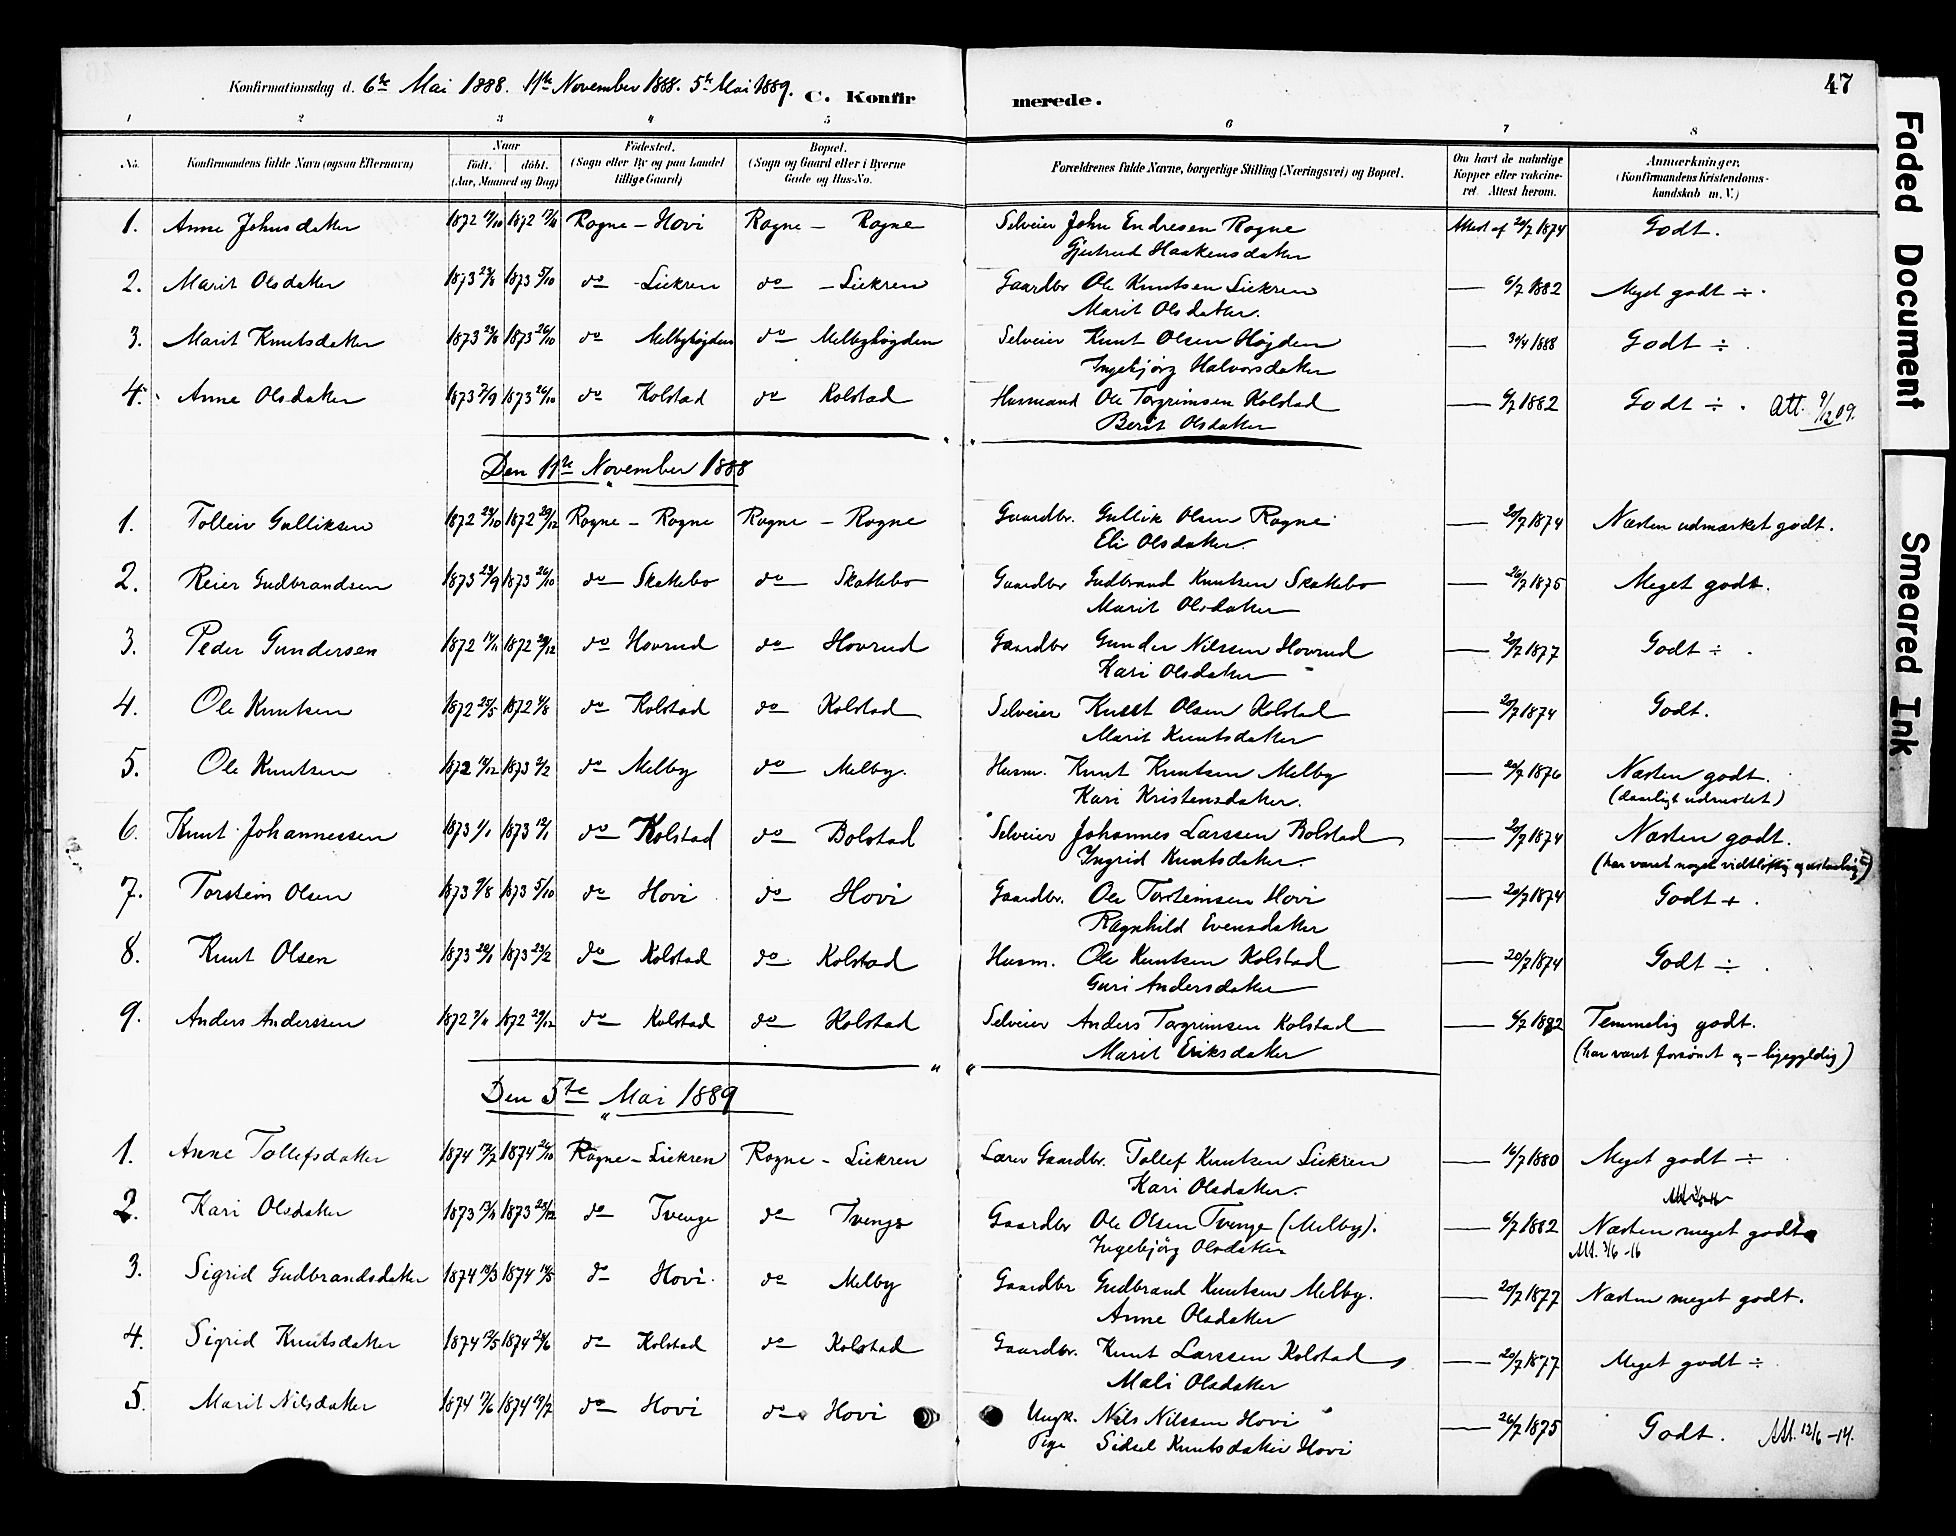 Konfirmationsdag d. 6te Mai 1888. 11te November 1888. 5te Mai 1889. C. Konfirmerede. 47
1 2 3 4 5 6 7 8
No. Konfirmandens fulde Navn (ogsaa Efternavn) Naar født. døbt. (Aar, Maaned og Dag) Fødested. (Sogn eller By og paa Landet tillige Gaard) Bopæl. (Sogn og Gaard eller i Byerne Gade og Hus-No. Forældrenes fulde Navne, borgerlige Stilling (Næringsvei) og Bopæl. Om havt de naturlige Kopper eller vakcineret. Attest herom. Anmærkninger. (Konfirmandens Kristendomskundskab m. V.)
1. Anne Johnsdatter 1872 1872 Rogne – Hovi Rogne – Rogne Selveier John Endresen Rogne Attest af 20/7 1874 Godt.
Gjertrud Haakensdatter
2. Marit Olsdatter 1873 1873 5/10 do – Liekren do – Liekren Gaardbr Ole Knutsen Liekren — 6/7 1882 Meget godt ÷ .
Marit Olsdatter.
3. Marit Knutsdatter 1873 1873 26/10 do Melbyhøgden do – Melbyhøgden Selveier Knut Olsen Høgden — 30/4 1888 Godt ÷ .
Ingebjørg Halvorsdatter
4. Anne Olsdatter 1873 7/9 1873 26/10 do Kolstad do Kolstad Husmand Ole Torgrimsen Kolstad — 6/7 1882 Godt ÷ . Att. 9/12 09.
Berit Olsdatter
Den 11te November 1888
1. Tolleiv Gulliksen 1872 1872 29/12 Rogne – Rogne Rogne – Rogne Gaardbr. Gullik Olsen Rogne — 20/7 1874 Næsten udmærket godt.
Eli Olsdatter.
2. Reier Gudbrandsen 1873 23/9 1873 26/10 do – Skattebo do – Skattebo Gaardbr Gudbrand Knutsen Skattebo — 26/7 1875 Meget godt.
Marit Olsdatter
3. Peder Gundersen 1872 1872 29/12 do Hovrud do – Hovrud Gaardbr Gunder Nilssen Hovrud — 20/7 1877 Godt ÷ .
Kari Olsdatter
4. Ole Knutsen 1872 25/5 1872 do Kolstad do – Kolstad Selveier Knut Olsen Kolstad — 20/7 1874 Godt.
Marit Knutsdatter
5. Ole Knutsen 1872 1873 2/2 do Melby do – Melby. Husm. Knut Knutsen Melby — 1876 Næsten godt.
Kari Kristensdatter. (daarligt udrustet)
6. Knut Johannessen 1873 1/1 1873 12/1 do – Kolstad do – Bolstad Selveier Johannes Larssen Bolstad — 20/7 1874 Næsten godt.
Ingrid Knutsdatter (har været noget vidtløftig og
7. Torstein Olsen 1873 7/8 1873 5/10 do – Hovi do – Hovi Gaardbr. Ole Torsteinsen Hovi — 20/7 1874 Godt + .
Ragnhild Evensdatter
8. Knut Olsen 1873 20/1 1873 23/2 do – Kolstad do – Kolstad Husm. Ole Knutsen Kolstad — 20/7 1874 Godt ÷ .
Guri Andersdatter
9. Anders Anderssen 1872 1872 29/12 do – Kolstad do – Kolstad Selveier Anders Torgrimsen Kolstad — 6/7 1882 Temmelig godt.
Marit Eriksdatter (har været forsømt og – ligegyldig)
Den 5te Mai 1889
1. Anne Tollefsdatter 1874 1874 Rogne – Liekren Rogne – Liekren Lærer Gaardbr. Tollef Knutsen Liekren — 16/7 1880 Meget godt ÷
Kari Olsdatter.
2. Kari Olsdatter 1873 1873 do – Tvenge do – Tvenge Gaardbr Ole Olsen Tvenge (Melby). — 6/7 1882 Næsten meget godt
Ingebjörg Olsdatter Att. 3/6 – 16
3. Sigrid Gudbrandsdatter 1874 1874 do Hovi. do – Melby Gaardbr Gudbrand Knutsen Melby. — 20/7 1877 Næsten meget godt.
Anne Olsdatter
4. Sigrid Knutsdatter 1874 12/5 1874 24/6 do – Kolstad do – Kolstad Gaardbr. Knut Larssen Kolstad — 20/7 1877 Meget godt ÷
Mali Olsdatter
5. Marit Nilsdatter 1874 1874 do – Hovi do – Hovi Ungk. Nils Nilssen Hovi — 26/7 1875 Godt. Att. 12/6 – 14.
Pige Sidsel Knutsdatter Hovi
Faded Document
Smeared Ink